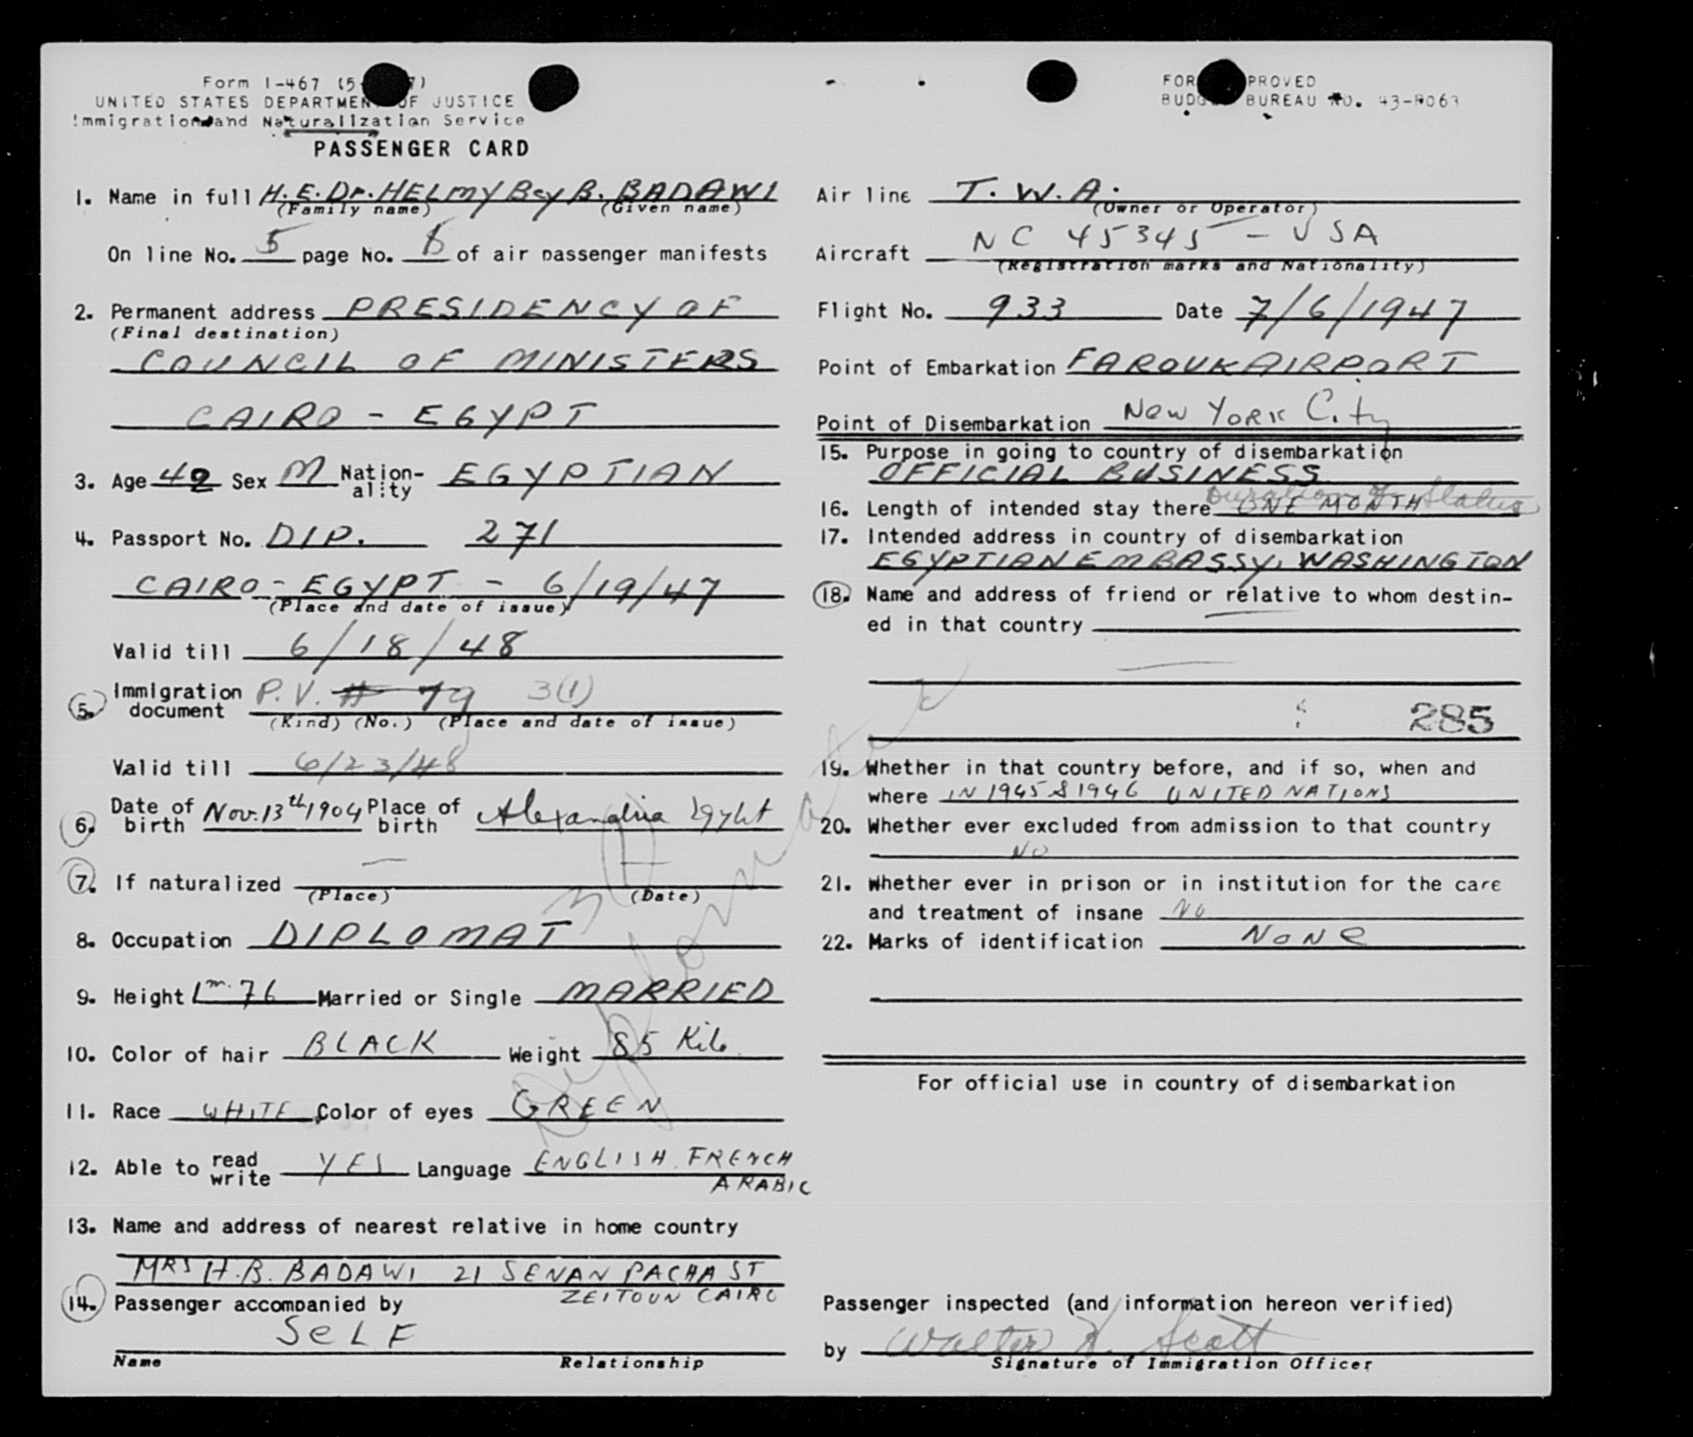 Form I-467 (5- 7)
UNITED STATES DEPARTMENT OF JUSTICE
Immigration and Naturalization Service
PASSENGER CARD
1. Name in full H.E. Dr. HELMY Bey B. BADAWI
(Family name) (Given name)
On line No. 5 page No. 6 of air passenger manifests
2. Permanent address PRESIDENCY OF
(Final destination)
COUNCIL OF MINISTERS
CAIRO - EGYPT
3. Age 42 Sex M Nation-ality EGYPTIAN
4. Passport No. DIP. 271
CAIRO - EGYPT - 6/19/47
(Place and date of issue)
Valid till 6/18/48
5. Immigration document P.V. # 79 3(1)
(Kind) (No.) (Place and date of issue)
Valid till 6/23/48
6. Date of birth Nov. 13th 1904 Place of birth Alexandria Egypt
7. If naturalized —
(Place) (Date)
8. Occupation DIPLOMAT
9. Height 1m.76 Married or Single MARRIED
10. Color of hair BLACK Weight 85 Kilo
11. Race WHITE Color of eyes GREEN
12. Able to read write YES Language ENGLISH. FRENCH
ARABIC
13. Name and address of nearest relative in home country
MRS H.B. BADAWI 21 SENAN PACHA ST
ZEITOUN CAIRO
14. Passenger accompanied by
SELF
Name Relationship
Diplomatic
FOR PROVED
BUDG BUREAU NO. 43-R063
Air line T.W.A.
(Owner or Operator)
Aircraft NC 45345 - USA
(Registration marks and Nationality)
Flight No. 933 Date 7/6/1947
Point of Embarkation FAROUK AIRPORT
Point of Disembarkation New York City
15. Purpose in going to country of disembarkation
OFFICIAL BUSINESS
Duration of Status
16. Length of intended stay there ONE MONTH
17. Intended address in country of disembarkation
EGYPTIAN EMBASSY, WASHINGTON
18. Name and address of friend or relative to whom destin-
ed in that country —
—
285
19. Whether in that country before, and if so, when and
where IN 1945 & 1946 UNITED NATIONS
20. Whether ever excluded from admission to that country
NO
21. Whether ever in prison or in institution for the care
and treatment of insane NO
22. Marks of identification NONE
For official use in country of disembarkation
Passenger inspected (and information hereon verified)
by Walter H. Scott
Signature of Immigration Officer